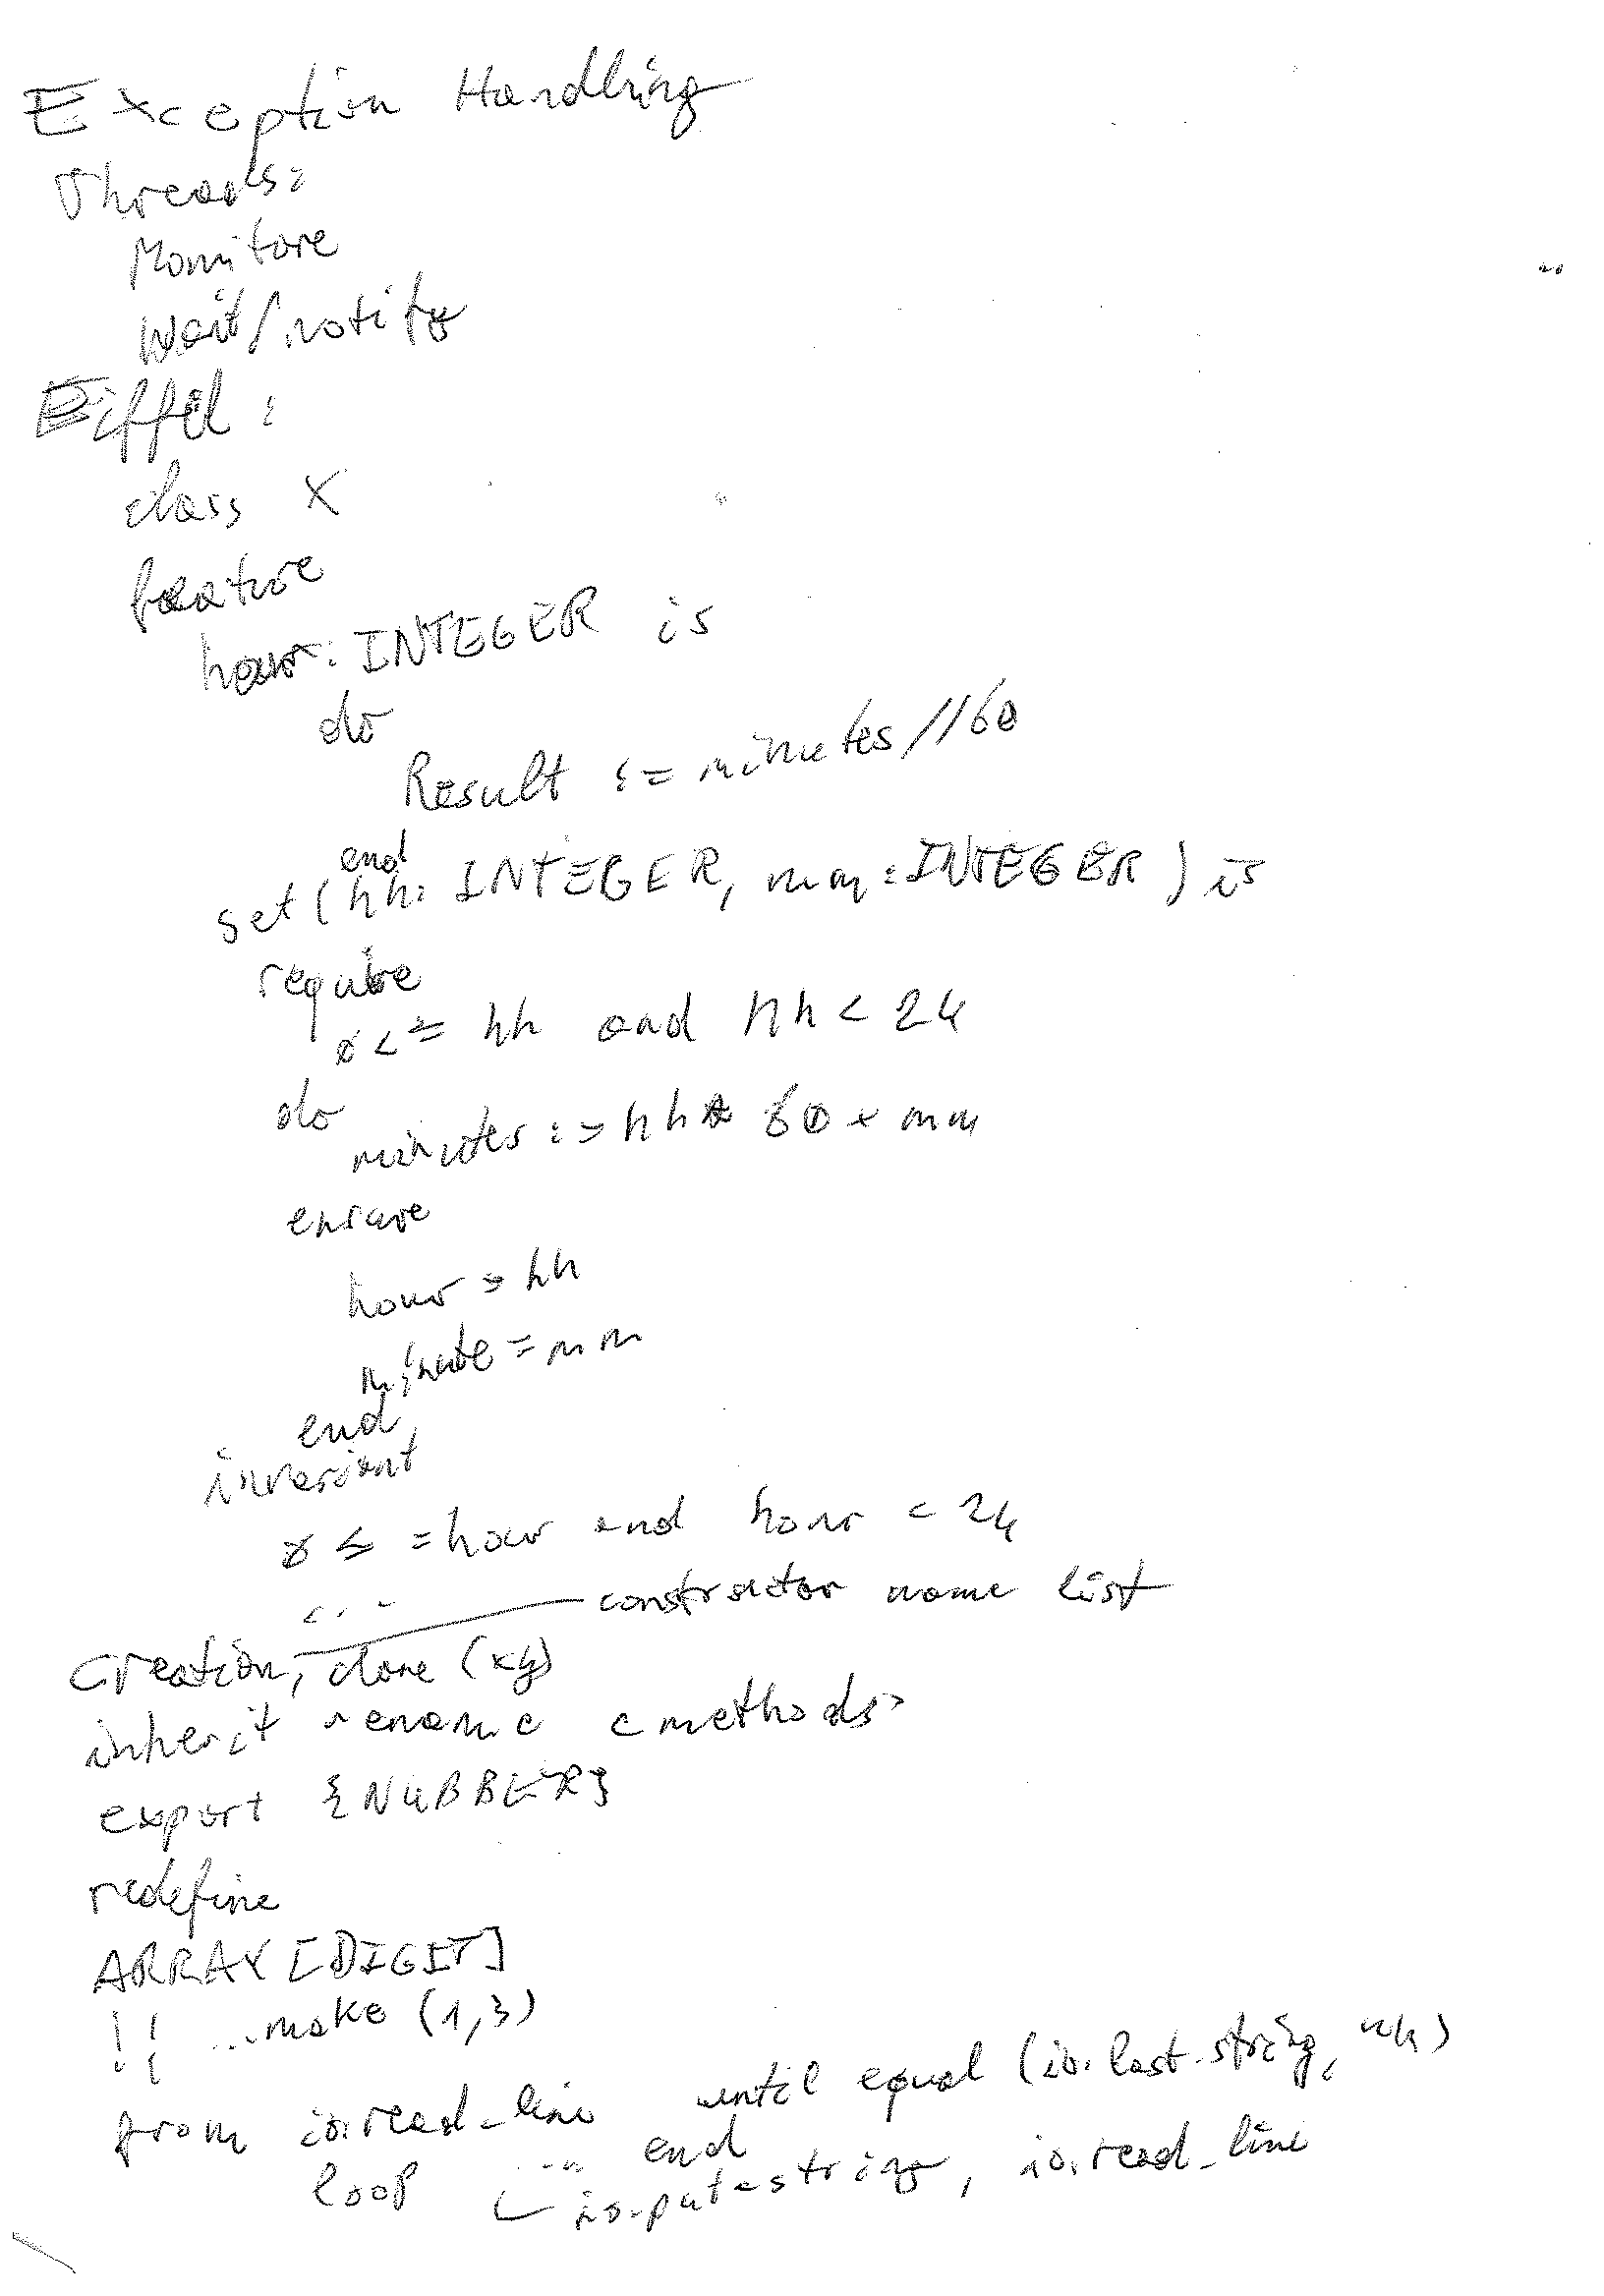 Exception Handling
Threads:
Monitore
wait/notify
Eiffel:
class X
feature
hour: INTEGER is
do
Result := minutes//60
end
set(hh: INTEGER, mm: INTEGER) is
require
0 <= hh and hh < 24
do
minutes := hh * 60 + mm
ensure
hour = hh
minute = mm
end
invariant
0 ≤ = hour and hour < 24
...
constructor name list
Creation, clone (xy)
inherit rename <methods>
export {NUBBER}
redefine
ARRAY [DIGIT]
!! ...make (1,3)
from io.read_line until equal (io.last-string, "")
loop ... end
io.put-string, io.read_line